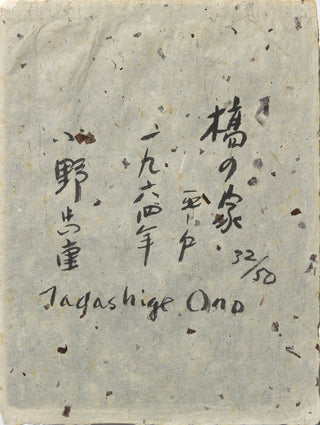 橋の家
平戸
一九六四年
小野忠重
32/50
Tadashige Ono